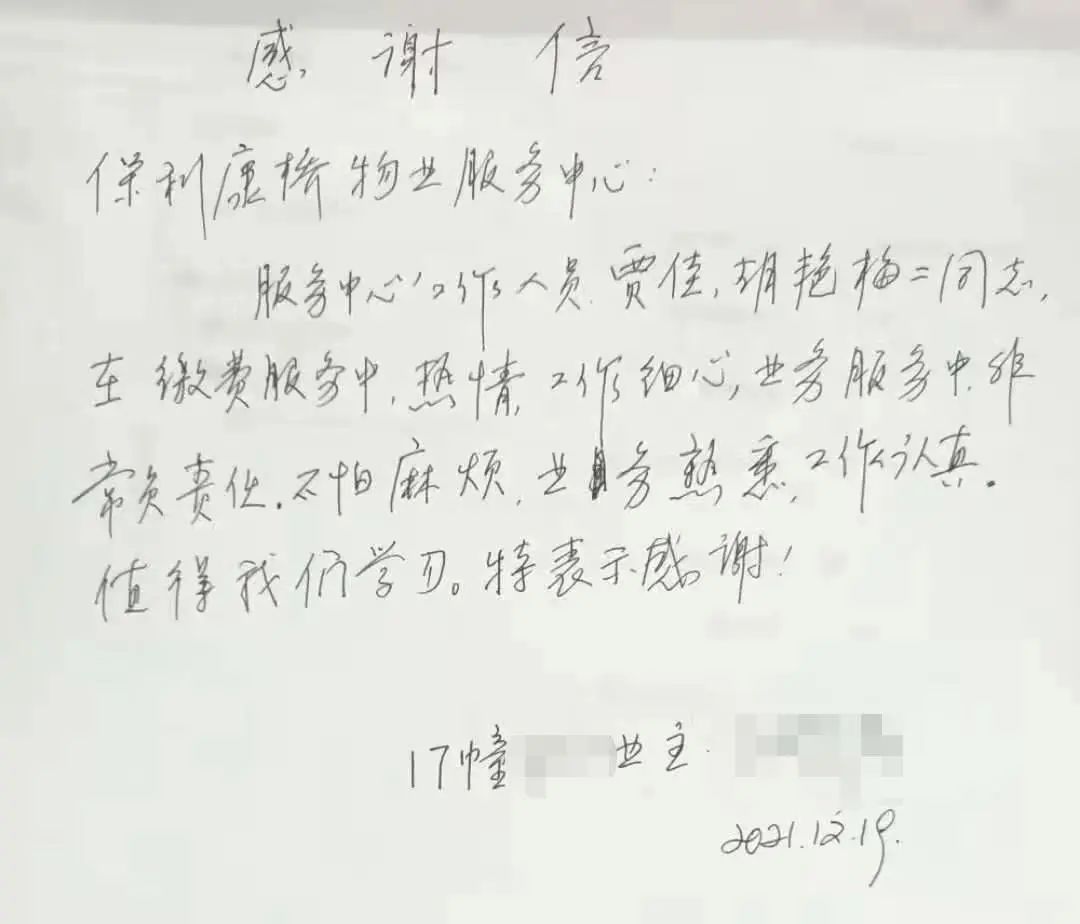 感谢信
保利康桥物业服务中心:
服务中心工作人员贾佳,胡艳梅二同志,
在缴费服务中,热情,工作细心,业务服务中,非
常负责任.不怕麻烦,业务熟悉,工作认真.
值得我们学习。特表示感谢!
17幢 业主
2021.12.19.